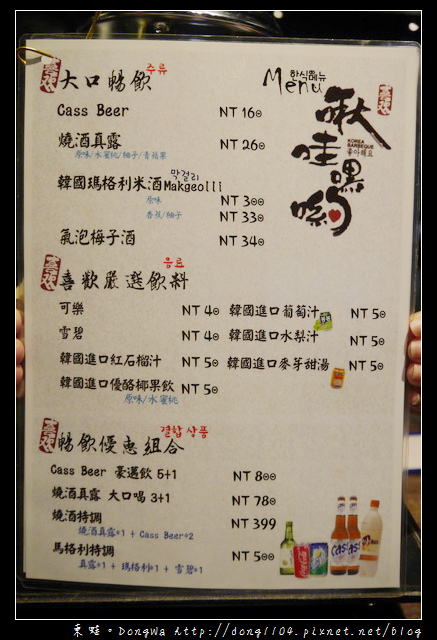 한식메뉴
Menu
啾哇嘿喲
KOREA
BARBEQUE
좋아해요
大口暢飲 주류
Cass Beer NT 160
燒酒真露 NT 260
原味/水蜜桃/柚子/青蘋果
막걸리
韓國瑪格利米酒Makgeolli
原味 NT 300
香蕉/柚子 NT 330
氣泡梅子酒 NT 340
喜歡嚴選飲料 음료
可樂 NT 40 韓國進口葡萄汁 NT 50
雪碧 NT 40 韓國進口水梨汁 NT 50
韓國進口紅石榴汁 NT 50 韓國進口麥芽甜湯 NT 50
韓國進口優酪椰果飲 NT 50
原味/水蜜桃
暢飲優惠組合 결합 상품
Cass Beer 豪邁飲 5+1 NT 800
燒酒真露 大口喝 3+1 NT 780
燒酒特調 NT 399
燒酒真露*1 + Cass Beer*2
馬格利特調 NT 500
真露*1 + 瑪格利*1 + 雪碧*1
東哇。DongWa http://dong1104.pixnet.net/blog